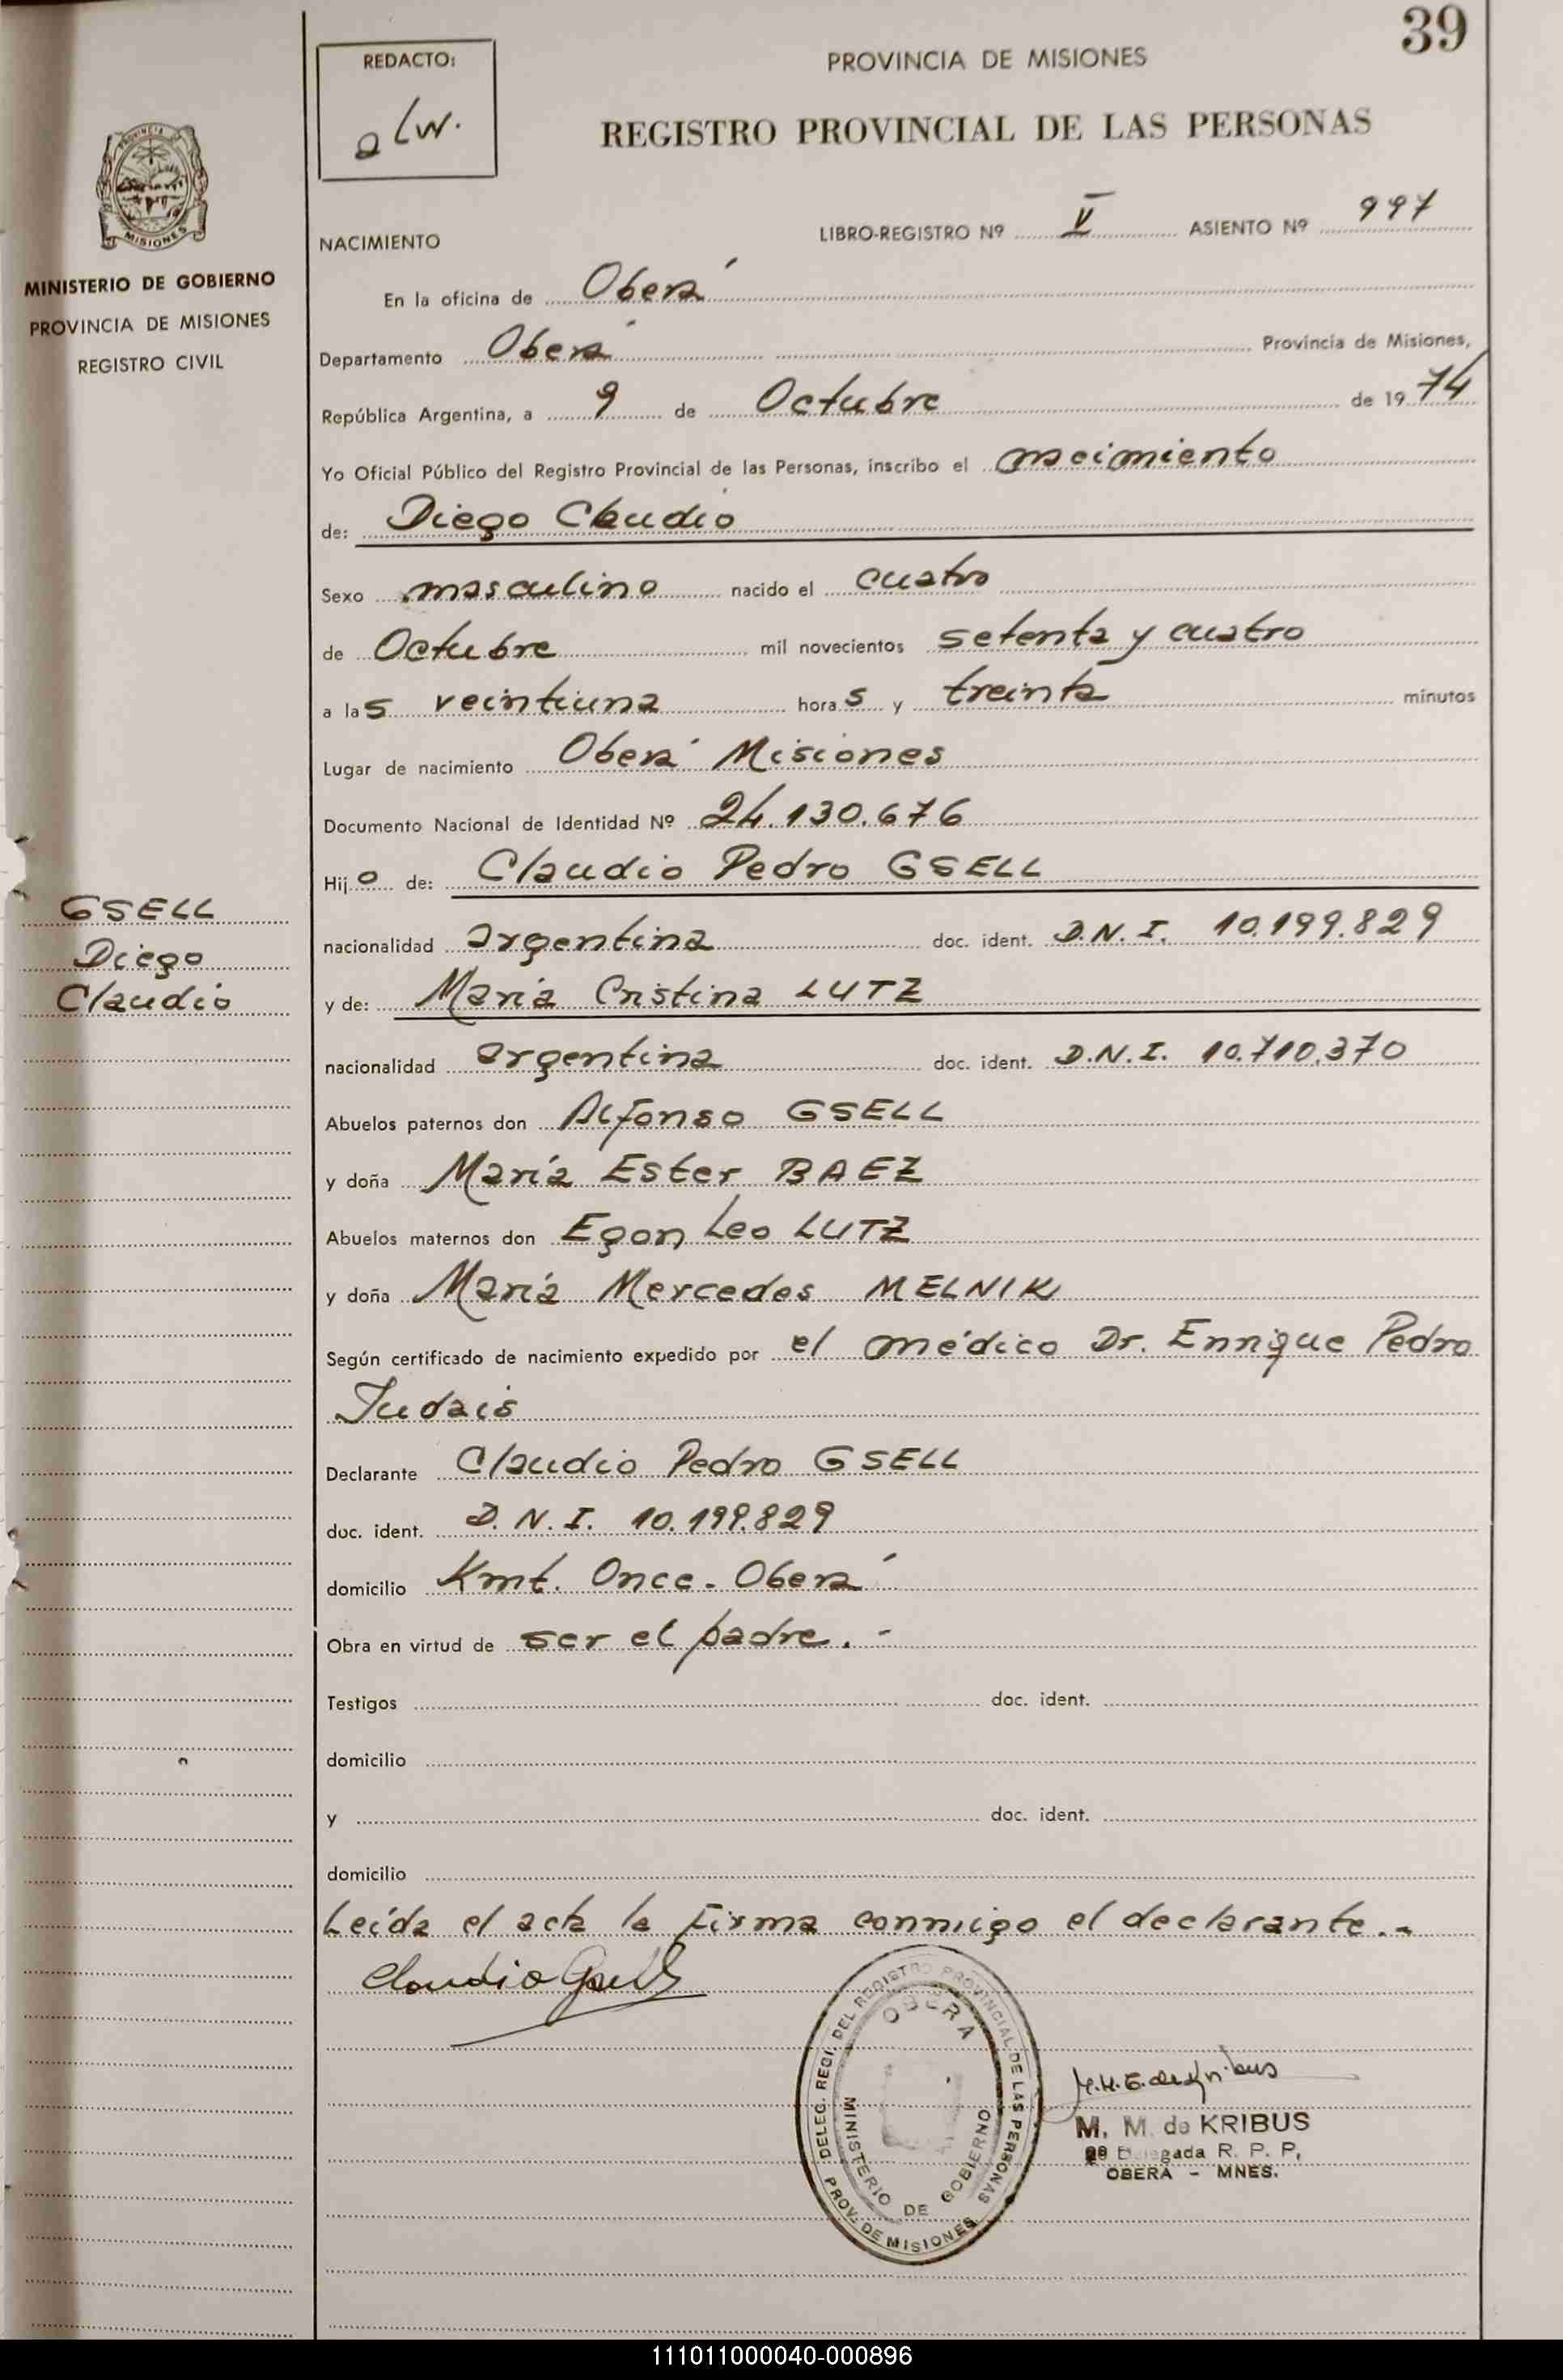 39
REDACTO:
alw.
PROVINCIA DE MISIONES
REGISTRO PROVINCIAL DE LAS PERSONAS
PROVINCIA
MISIONES
MINISTERIO DE GOBIERNO
PROVINCIA DE MISIONES
REGISTRO CIVIL
NACIMIENTO
LIBRO-REGISTRO Nº V ASIENTO Nº 997
En la oficina de Oberá
Departamento Oberá Provincia de Misiones,
República Argentina, a 9 de Octubre de 1974
Yo Oficial Público del Registro Provincial de las Personas, inscribo el nacimiento
de: Diego Claudio
Sexo masculino nacido el cuatro
de Octubre mil novecientos setenta y cuatro
a las veintiuna horas y treinta minutos
Lugar de nacimiento Oberá Misiones
Documento Nacional de Identidad Nº 24.130.676
Hijo de: Claudio Pedro GSELL
GSELL
Diego
Claudio
nacionalidad argentina doc. ident. D.N.I. 10.199.829
y de: María Cristina LUTZ
nacionalidad argentina doc. ident. D.N.I. 10.710.370
Abuelos paternos don Alfonso GSELL
y doña María Ester BAEZ
Abuelos maternos don Egon Leo LUTZ
y doña María Mercedes MELNIK
Según certificado de nacimiento expedido por el médico Dr. Enrique Pedro
Judais
Declarante Claudio Pedro GSELL
doc. ident. D.N.I. 10.199.829
domicilio Kmt. Once - Oberá
Obra en virtud de ser el padre. -
Testigos doc. ident.
domicilio
y doc. ident.
domicilio
Leída el acta la firma conmigo el declarante.-
Claudio Gsell
DELEG. REGI. DEL REGISTRO PROVINCIAL DE LAS PERSONAS
OBERA
MINISTERIO DE GOBIERNO
PROV. DE MISIONES
M. M. de KRIBUS
Delegada R. P. P.
OBERA - MNES.
111011000040-000896